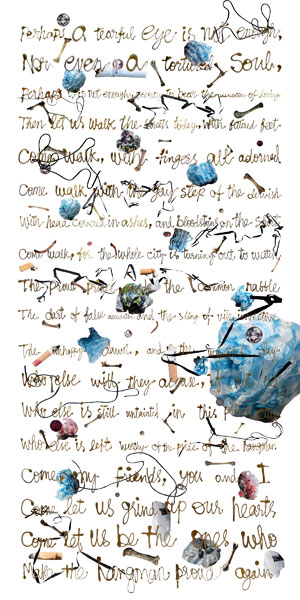 Perhaps a tearful eye is not enough,
Nor even a tortured soul,
Perhaps it is not enough, secrets to bear the of loving
Then let us walk the streets today, with feet
Come walk, with fingers all adorned
Come walk with the gay step of the dervish
With head covered in ashes, and bloodstains on the shirt
Come walk, for the whole city is turning out to watch
The proud the common rabble
The dart of false accusation and the sling of vile invective
The unhappy dawn, and the day
Who else will they accuse,
Who else is still untainted in this
who else is left worthy of the pride of the hangman
Come my friends, you and I
Come let us grind up our hearts
Come let us be the ones, who
Make the Hangman proud again